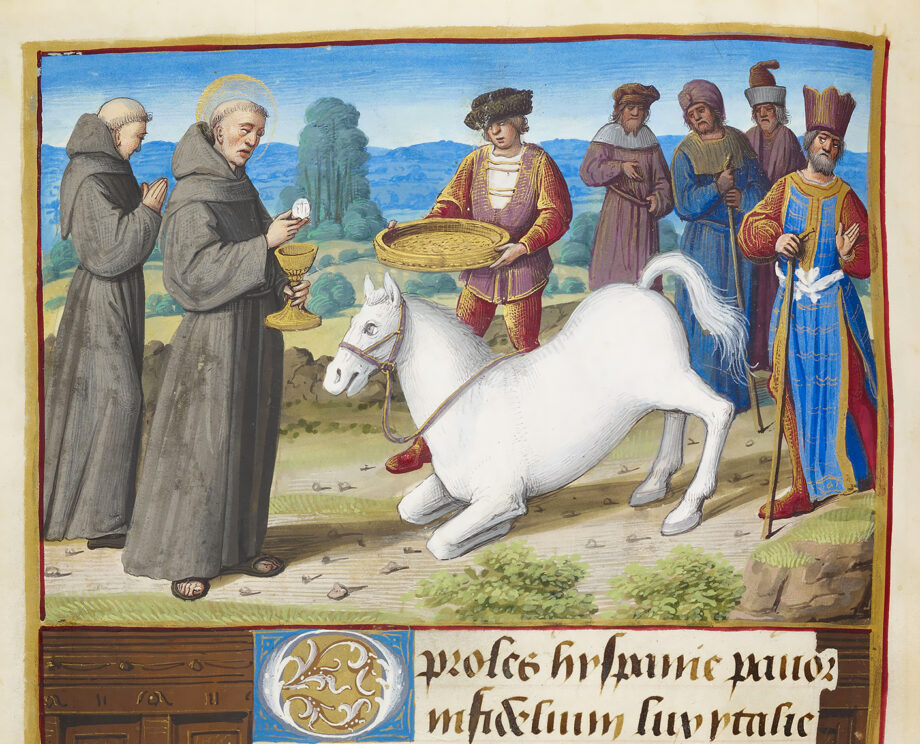 O proles hyspanie pauor
infidelium lux ytalie